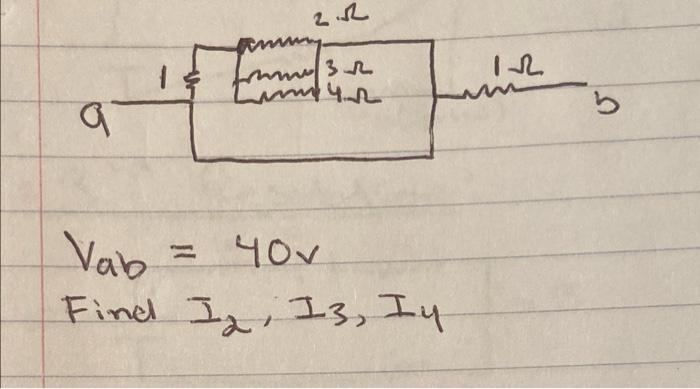 2 Ω
1
3 Ω
4 Ω
1 Ω
a
b
Vab = 40v
Find I2, I3, I4